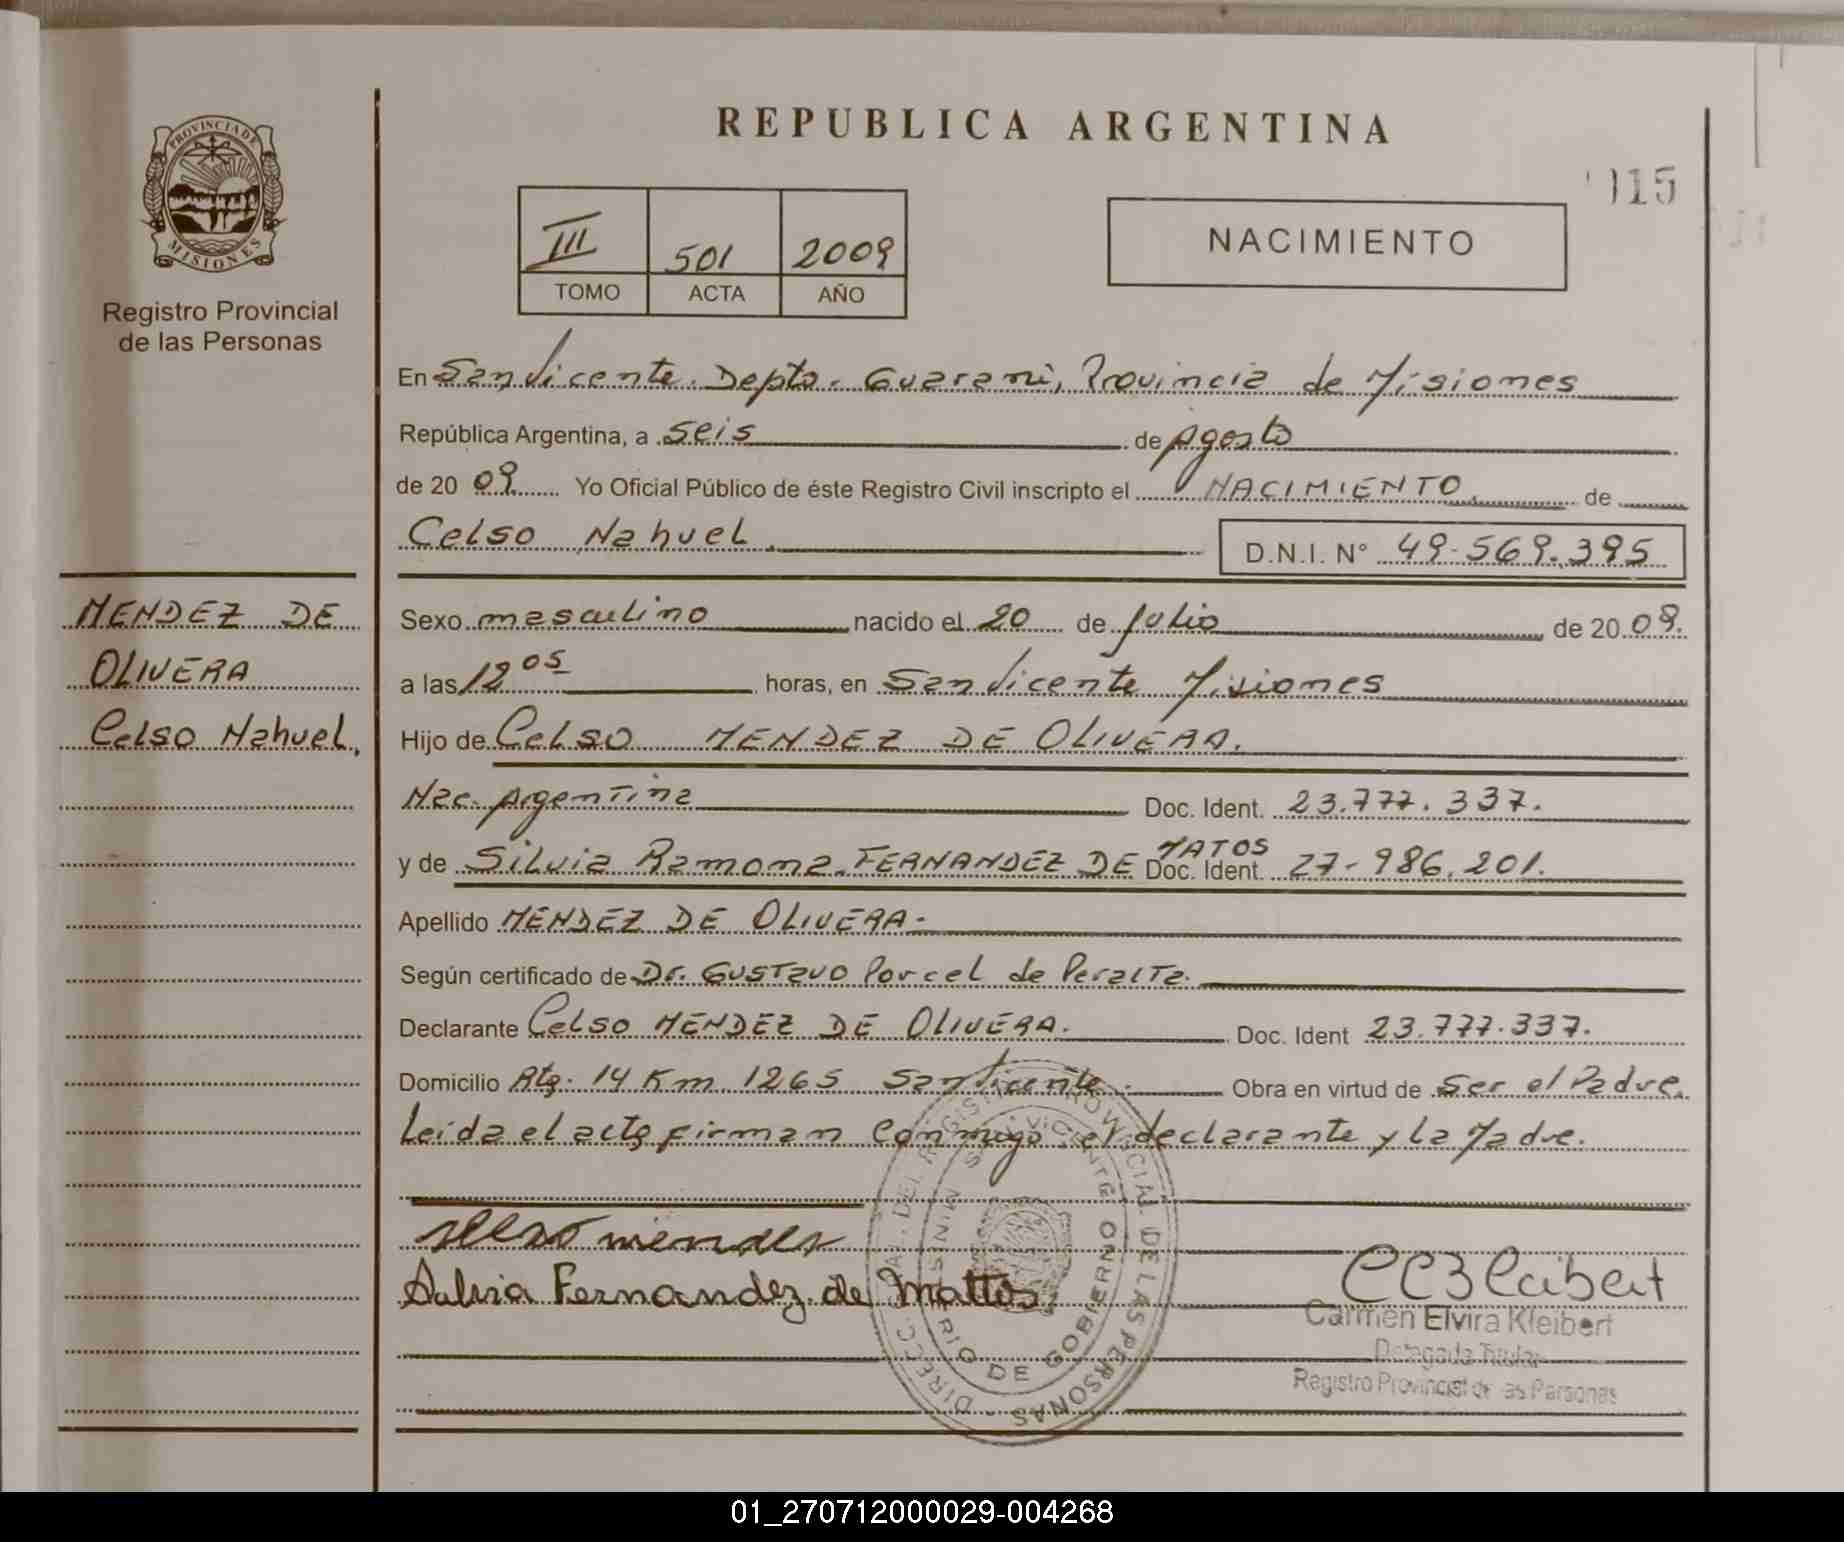 REPUBLICA ARGENTINA
PROVINCIA DE
MISIONES
Registro Provincial
de las Personas
III 501 2009
TOMO ACTA AÑO
NACIMIENTO
115
En San Vicente. Depto. Guarani, Provincia de Misiones
República Argentina, a seis de Agosto
de 20 09 Yo Oficial Público de éste Registro Civil inscripto el NACIMIENTO. de
Celso Nahuel. D.N.I. N° 49.569.395
MENDEZ DE
OLIVERA
Celso Nahuel.
Sexo masculino nacido el 20 de Julio de 20 09.
a las 12 05 horas, en San Vicente Misiones
Hijo de Celso MENDEZ DE OLIVERA.
Nac. Argentina Doc. Ident. 23.777.337.
y de Silvia Ramona FERNANDEZ DE MATOS Doc. Ident. 27-986.201.
Apellido MENDEZ DE OLIVERA-
Según certificado de Dr. Gustavo Porcel de Peralta.
Declarante Celso MENDEZ DE OLIVERA. Doc. Ident 23.777.337.
Domicilio Rta. 14 Km 1265 San Vicente. Obra en virtud de Ser el Padre.
Leida el acta firman Conmigo el declarante y la Madre.
mendes
Silvia Fernandez de Mattos
DIRECC. GRAL. DEL REGISTRO PROVINCIAL DE LAS PERSONAS
MINISTERIO DE GOBIERNO
SAN VICENTE
Carmen Elvira Kleibert
Delegada Titular
Registro Provincial de las Personas
01_270712000029-004268